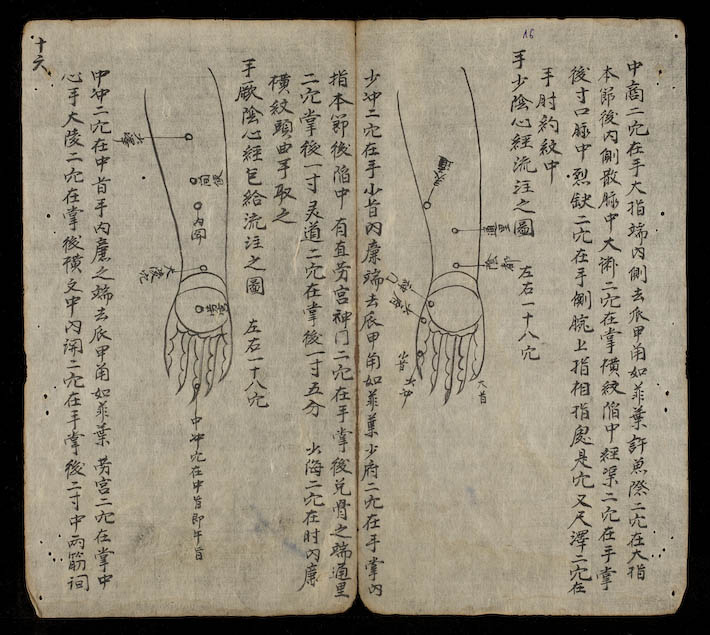 16
中商二穴在手大指端內側去爪甲角如韭葉許魚際二穴在大指
本節後內側散脉中大渊二穴在掌横紋陷中經渠二穴在手掌
後寸口脉中烈缺二穴在手側腕上指相指處是穴又尺澤二穴在
手肘約紋中
手少陰心經流注之圖
左右一十八穴
通里
大指
少冲二穴在手小旨內廉端去爪甲角如韭葉少府二穴在手掌內
指本節後陷中 有直劳宮神門二穴在手掌後兑骨之端通里
二穴掌後一寸灵道二穴在掌後一寸五分 少海二穴在肘內廉
横紋頭曲手取之
手厥陰心經包給流注之圖
左右一十八穴
間使
內関
大陵穴
劳宮
中冲穴在中旨即午旨
中冲二穴在中旨手內廉之端去爪甲角如韭葉 劳宮二穴在掌中
心手大陵二穴在掌後横文中內関二穴在手掌後二寸中兩筋间
十六